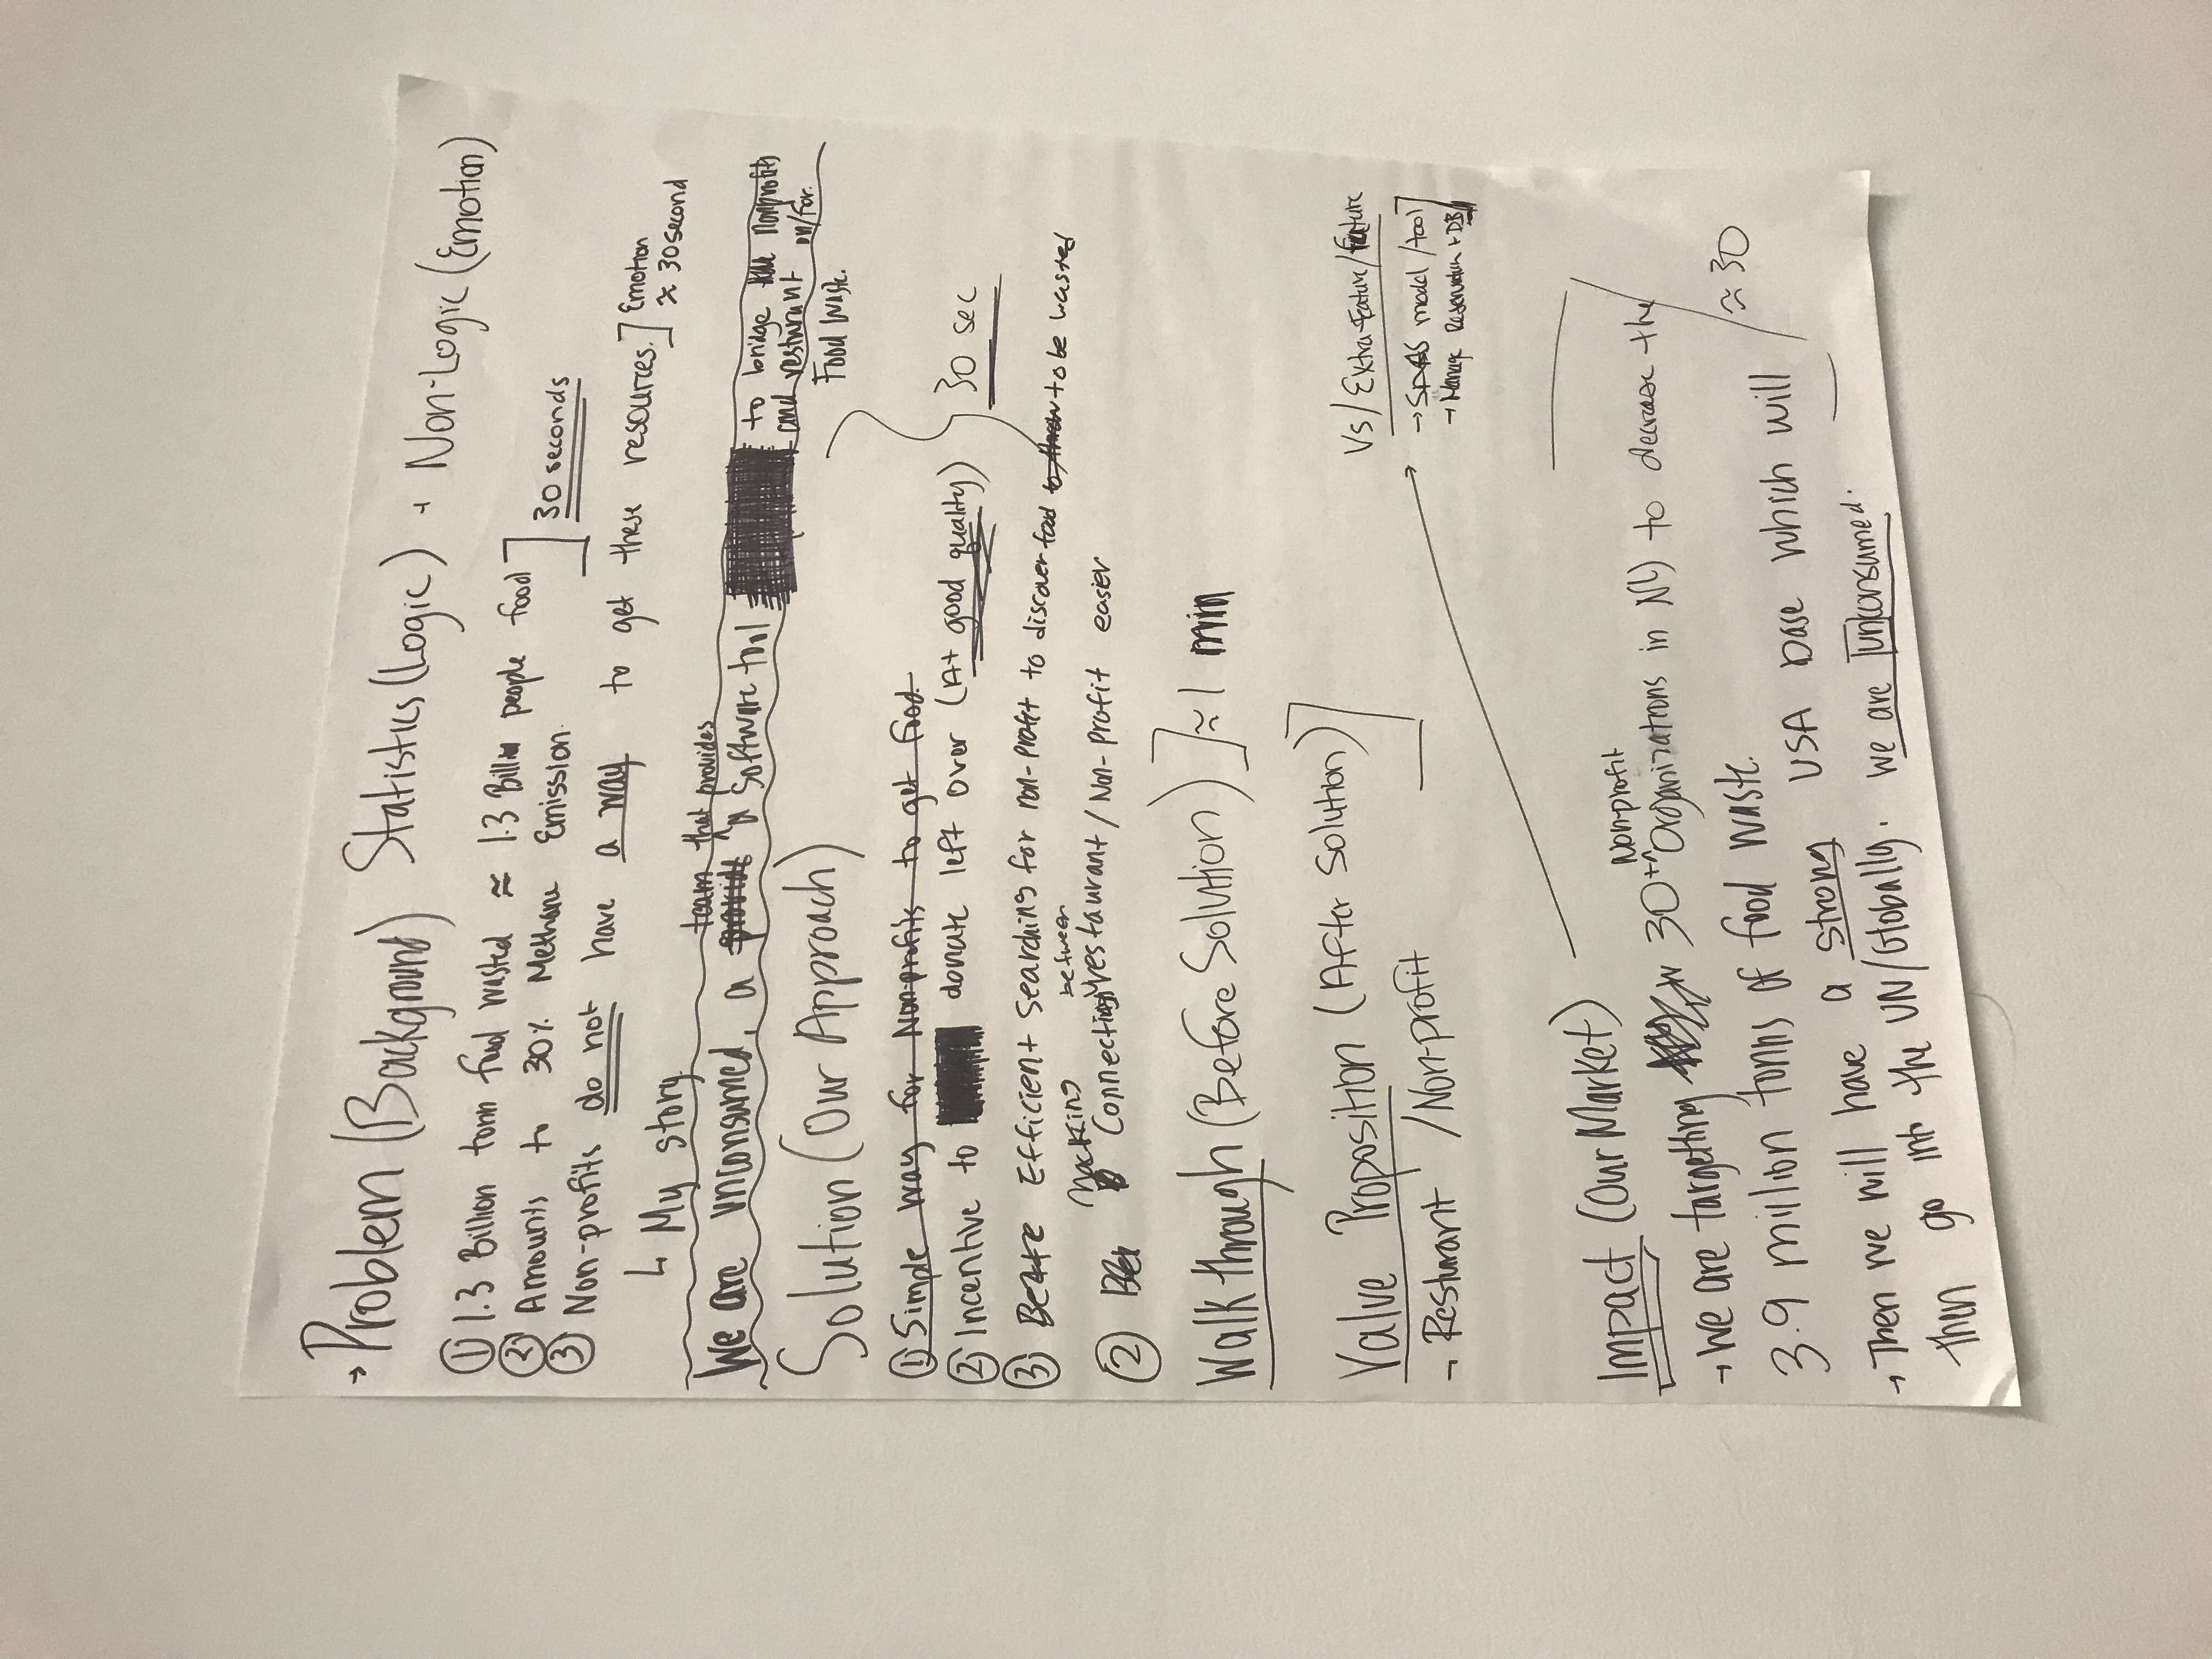 → Problem (Background) Statistics (Logic) + Non-Logic (Emotion)
① 1.3 Billion tonn food wasted ≈ 1.3 Billion people food]
② Amounts to 30% Methane Emission. ] 30 seconds
③ Non-profits do not have a way to get these resources.] Emotion
≈ 30 second
↳ My story
team that provides
We are unconsumed, a provide a software tool to bridge nonprofits
and resturant on/for
Food Waste.
Solution (Our Approach)
① Simple way for Non-profits to get food.
② Incentive to donate left over (At good quality)
30 sec
③ Efficient Searching for non-profit to discover food to throw to be wasted
between
② Connecting restaurant / Non-profit easier
Walk through (Before Solution)] ≈ 1 min
Value Proposition (After Solution)]
→ Resturant / Non-profit
Vs / Extra Feature / Feature
→ model / tool]
→ Manage Reservation + DB
Impact (Our Market)
Non-profit
→ We are targetting 30++ Organizations in NU to decrease the
3.9 million tonns of food waste.
→ Then we will have a strong USA base which will
then go into the UN/Globally. We are unconsumed.
≈ 30